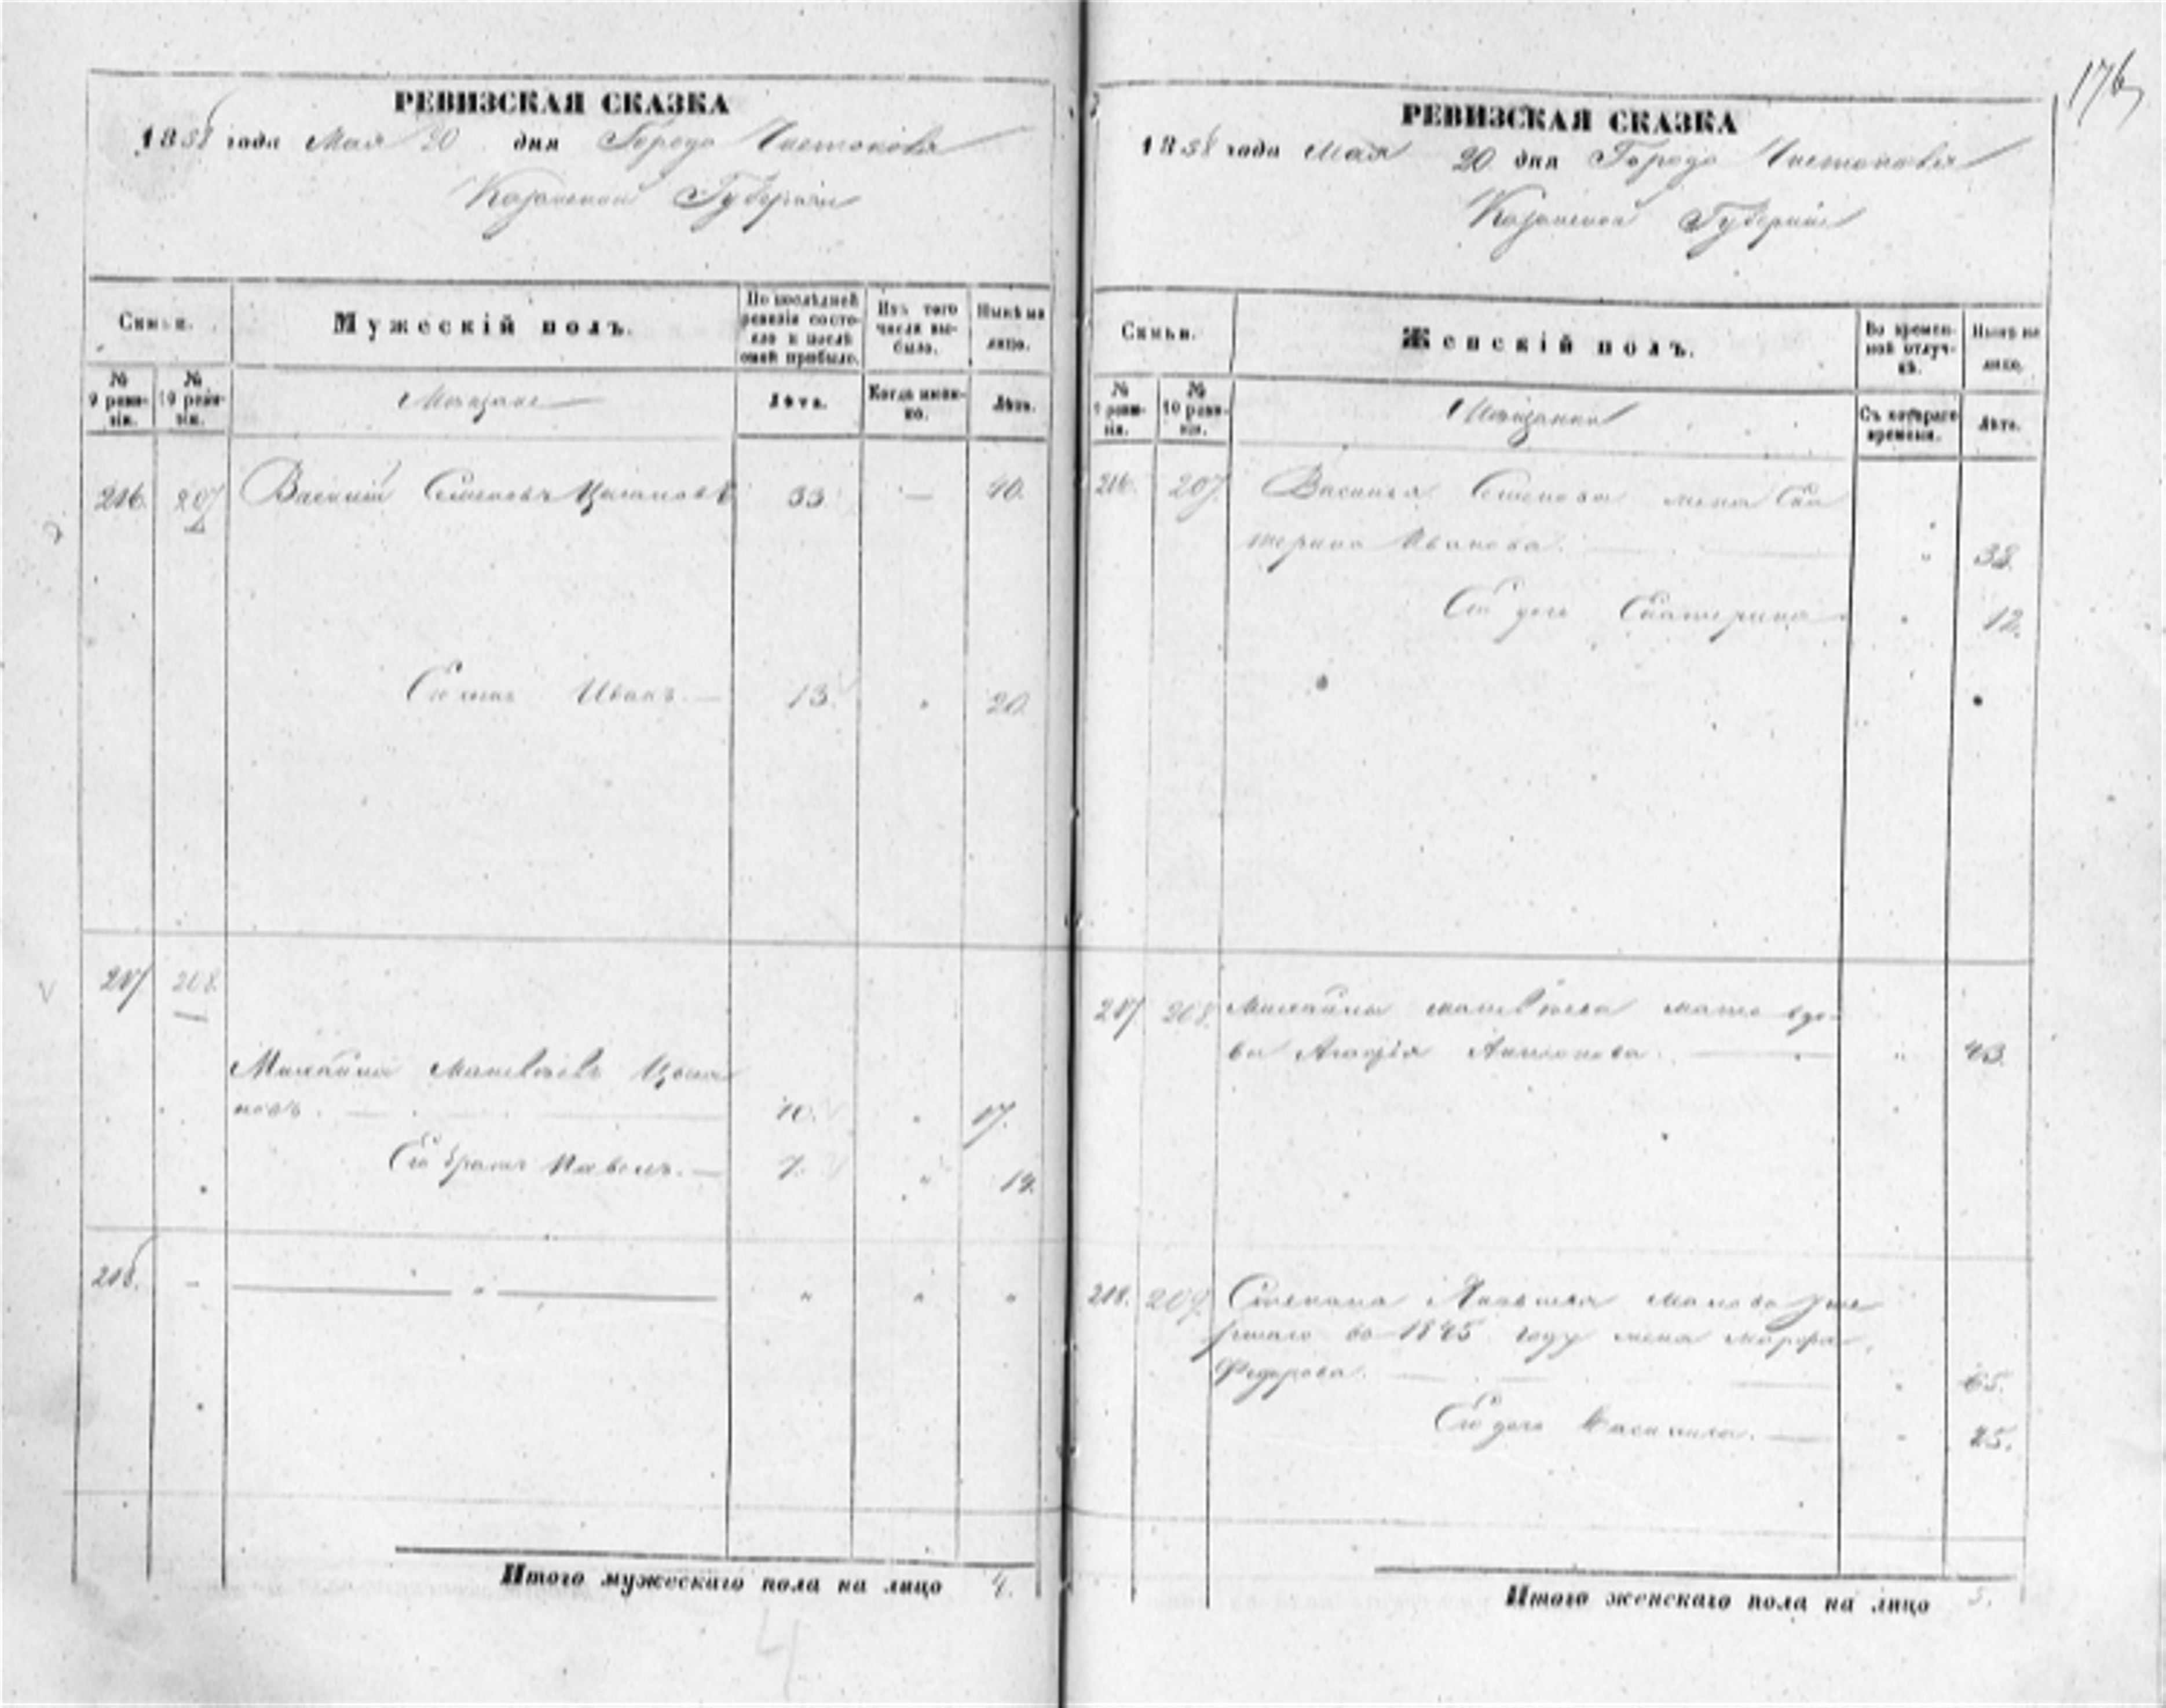 176
РЕВИЗСКАЯ СКАЗКА
1858 года Мая 20 дня Города Чистополя
Казанской Губернии
Семьи.
Мужескій полъ.
По послѣдней ревизіи состояло и послѣ оной прибыло.
Изъ того числа выбыло.
Нынѣ на лицо.
№ 9 ревизіи.
№ 10 ревизіи.
Мѣщане
Лѣта.
Когда именно.
Лѣта.
216. 207 Василій Семеновъ Цыгановъ 33. — 40.
Его сынъ Иванъ. — 13. " 20.
217 208
Михайла Матвѣевъ Цыга
новъ. — 10. " 17.
Его братъ Павелъ. — 7. " 14.
218. - — " — " " "
Итого мужескаго пола на лицо 4.
4
РЕВИЗСКАЯ СКАЗКА
1858 года Мая 20 дня Города Чистополя
Казанской Губерніи
Семьи.
Женскій полъ.
Во временной отлучкѣ.
Нынѣ на лицо.
№ 9 ревизіи.
№ 10 ревизіи.
Мѣщанки
Съ котораго времени.
Лѣта.
216. 207. Василья Семенова жена Ека
терина Иванова. — " 38.
Его дочь Екатерина " 12.
217 208. Михайлы Матвѣева мать вдо-
ва Антонова. — " 43.
218. 209. Степана уме
ршаго въ 1845 году жена Марфа
Федорова. — " 65.
Его дочь Василиса. — " 25.
Итого женскаго пола на лицо 5.